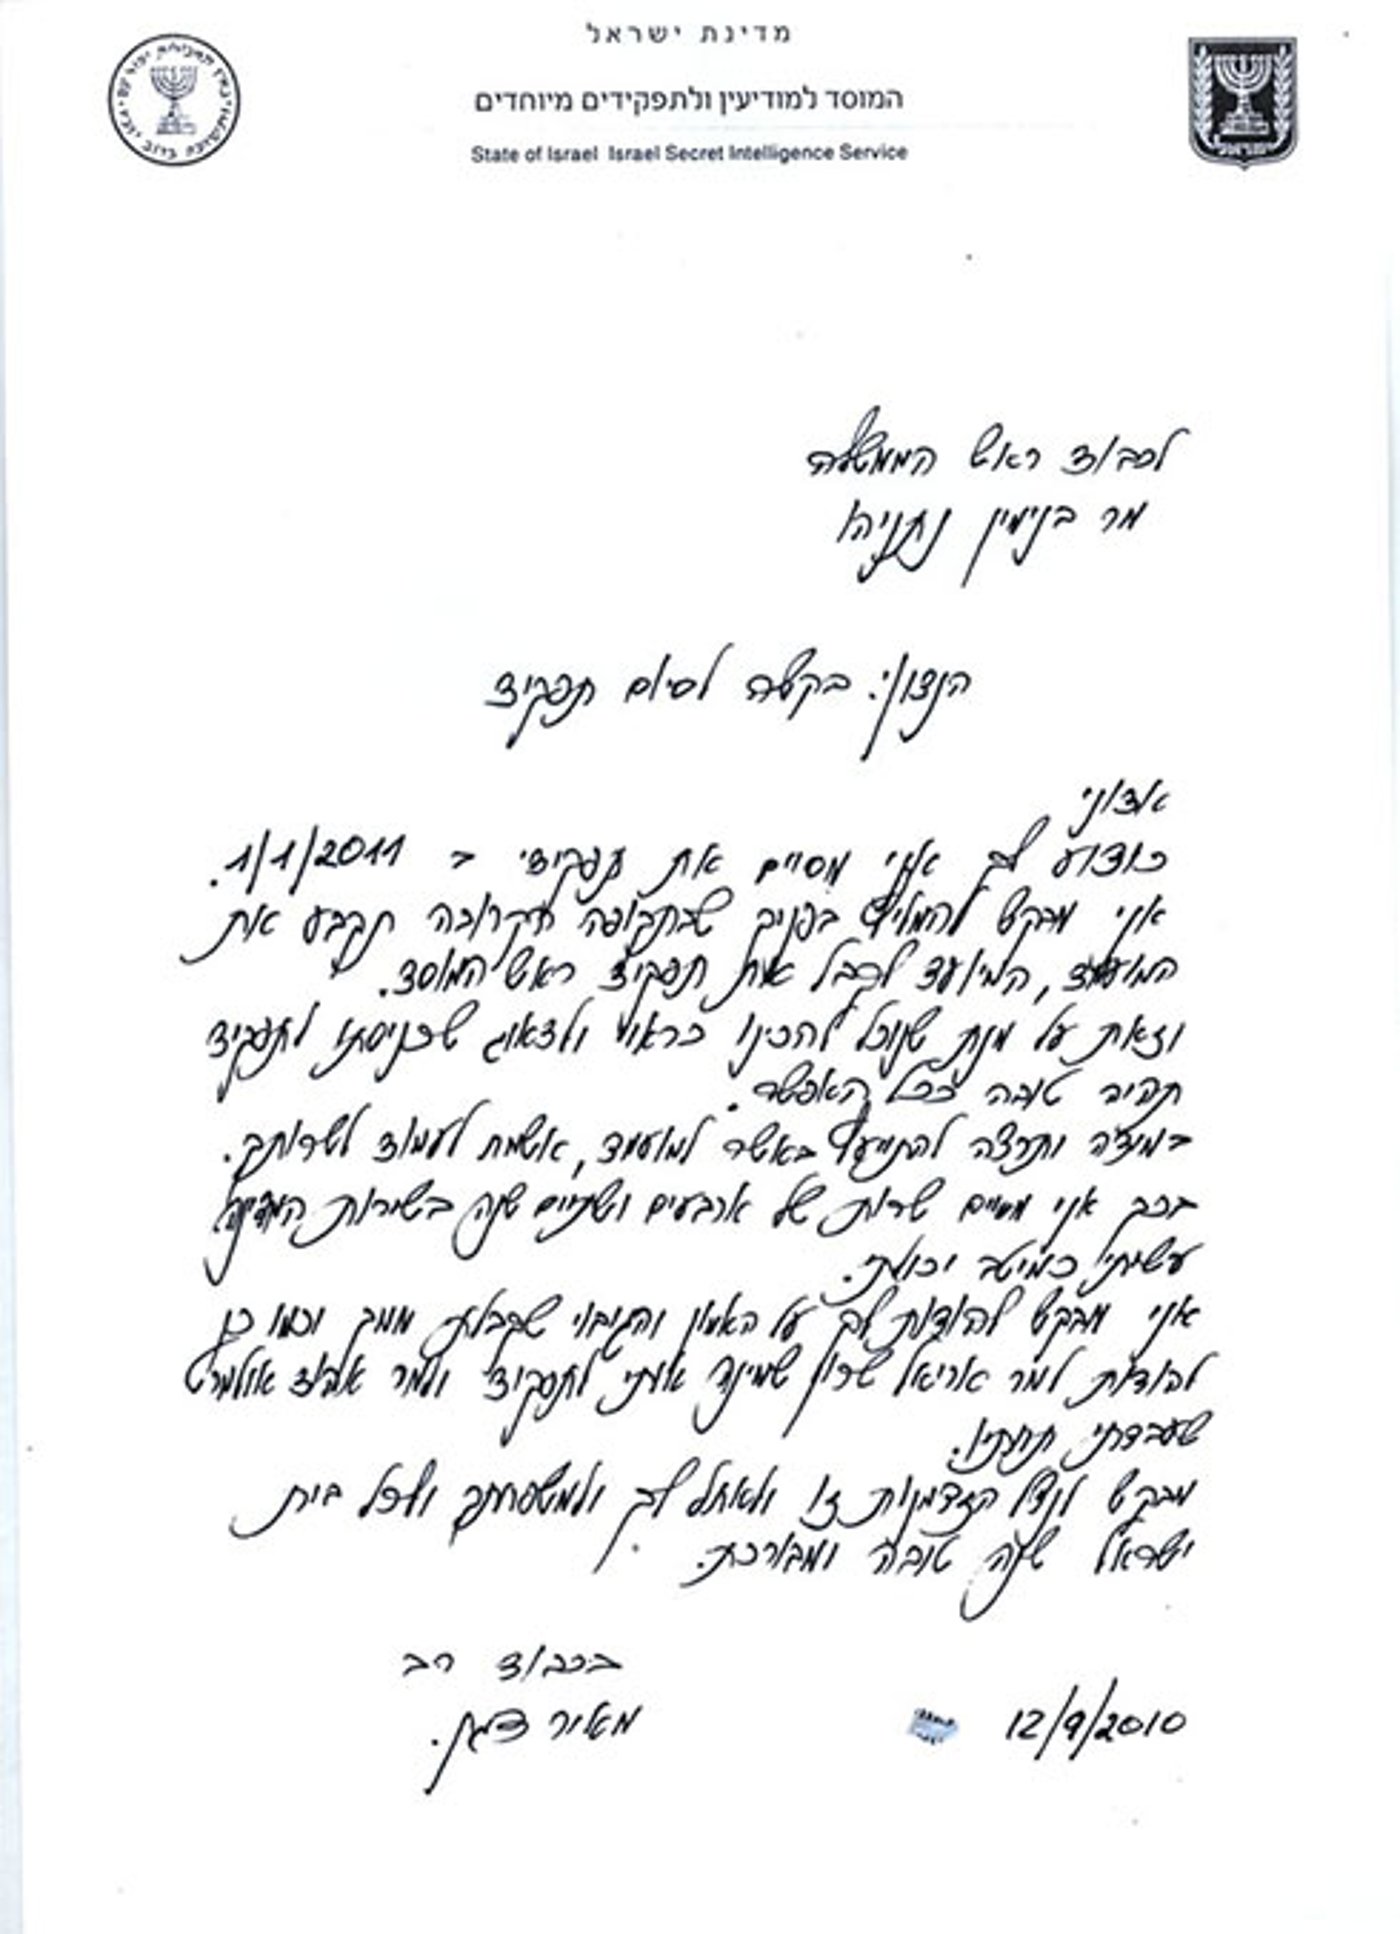 מדינת ישראל
המוסד למודיעין ולתפקידים מיוחדים
State of Israel Israel Secret Intelligence Service
לכבוד ראש הממשלה
מר בנימין נתניהו
הנדון: בקשה לסיום תפקיד
אדוני
כידוע לך אני מסיים את תפקידי ב 1/1/2011.
אני מבקש להמליץ בפניך שבתקופה הקרובה תקבע את
המועמד, המיועד לקבל את תפקיד ראש המוסד.
וזאת על מנת שנוכל להכינו כראוי ולדאוג שכניסתו לתפקיד
תהיה טובה ככל האפשר.
במידה ותרצה להתייעץ באשר למועמד, אשמח לעמוד לשרותך.
בכך אני מסיים שרות של ארבעים ושתיים שנה בשירות המדינה
עשיתי כמיטב יכולתי.
אני מבקש להודות לך על האמון והגיבוי שקבלתי ממך וכמו כן
להודות למר אריאל שרון שמינה אותי לתפקיד ולמר אהוד אולמרט
שעבדתי תחתיו.
מבקש לנצל הזדמנות זו ולאחל לך ולמשפחתך ולכל בית
ישראל שנה טובה ומבורכת.
בכבוד רב
מאיר דגן.
12/9/2010